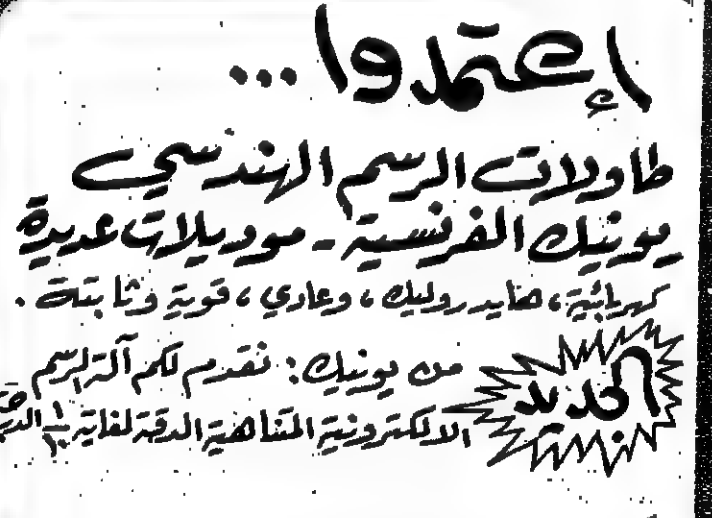 إعتمدوا ...
طاولات الرسم الهندسي
يونيك الفرنسية - موديلات عديدة
كهربائية ، هايدروليك ، وعادي ، قوية وثابتة .
الجديد
من يونيك : نقدم لكم آلة الرسم
الالكترونية المتناهية الدقة لغاية ١/١٠